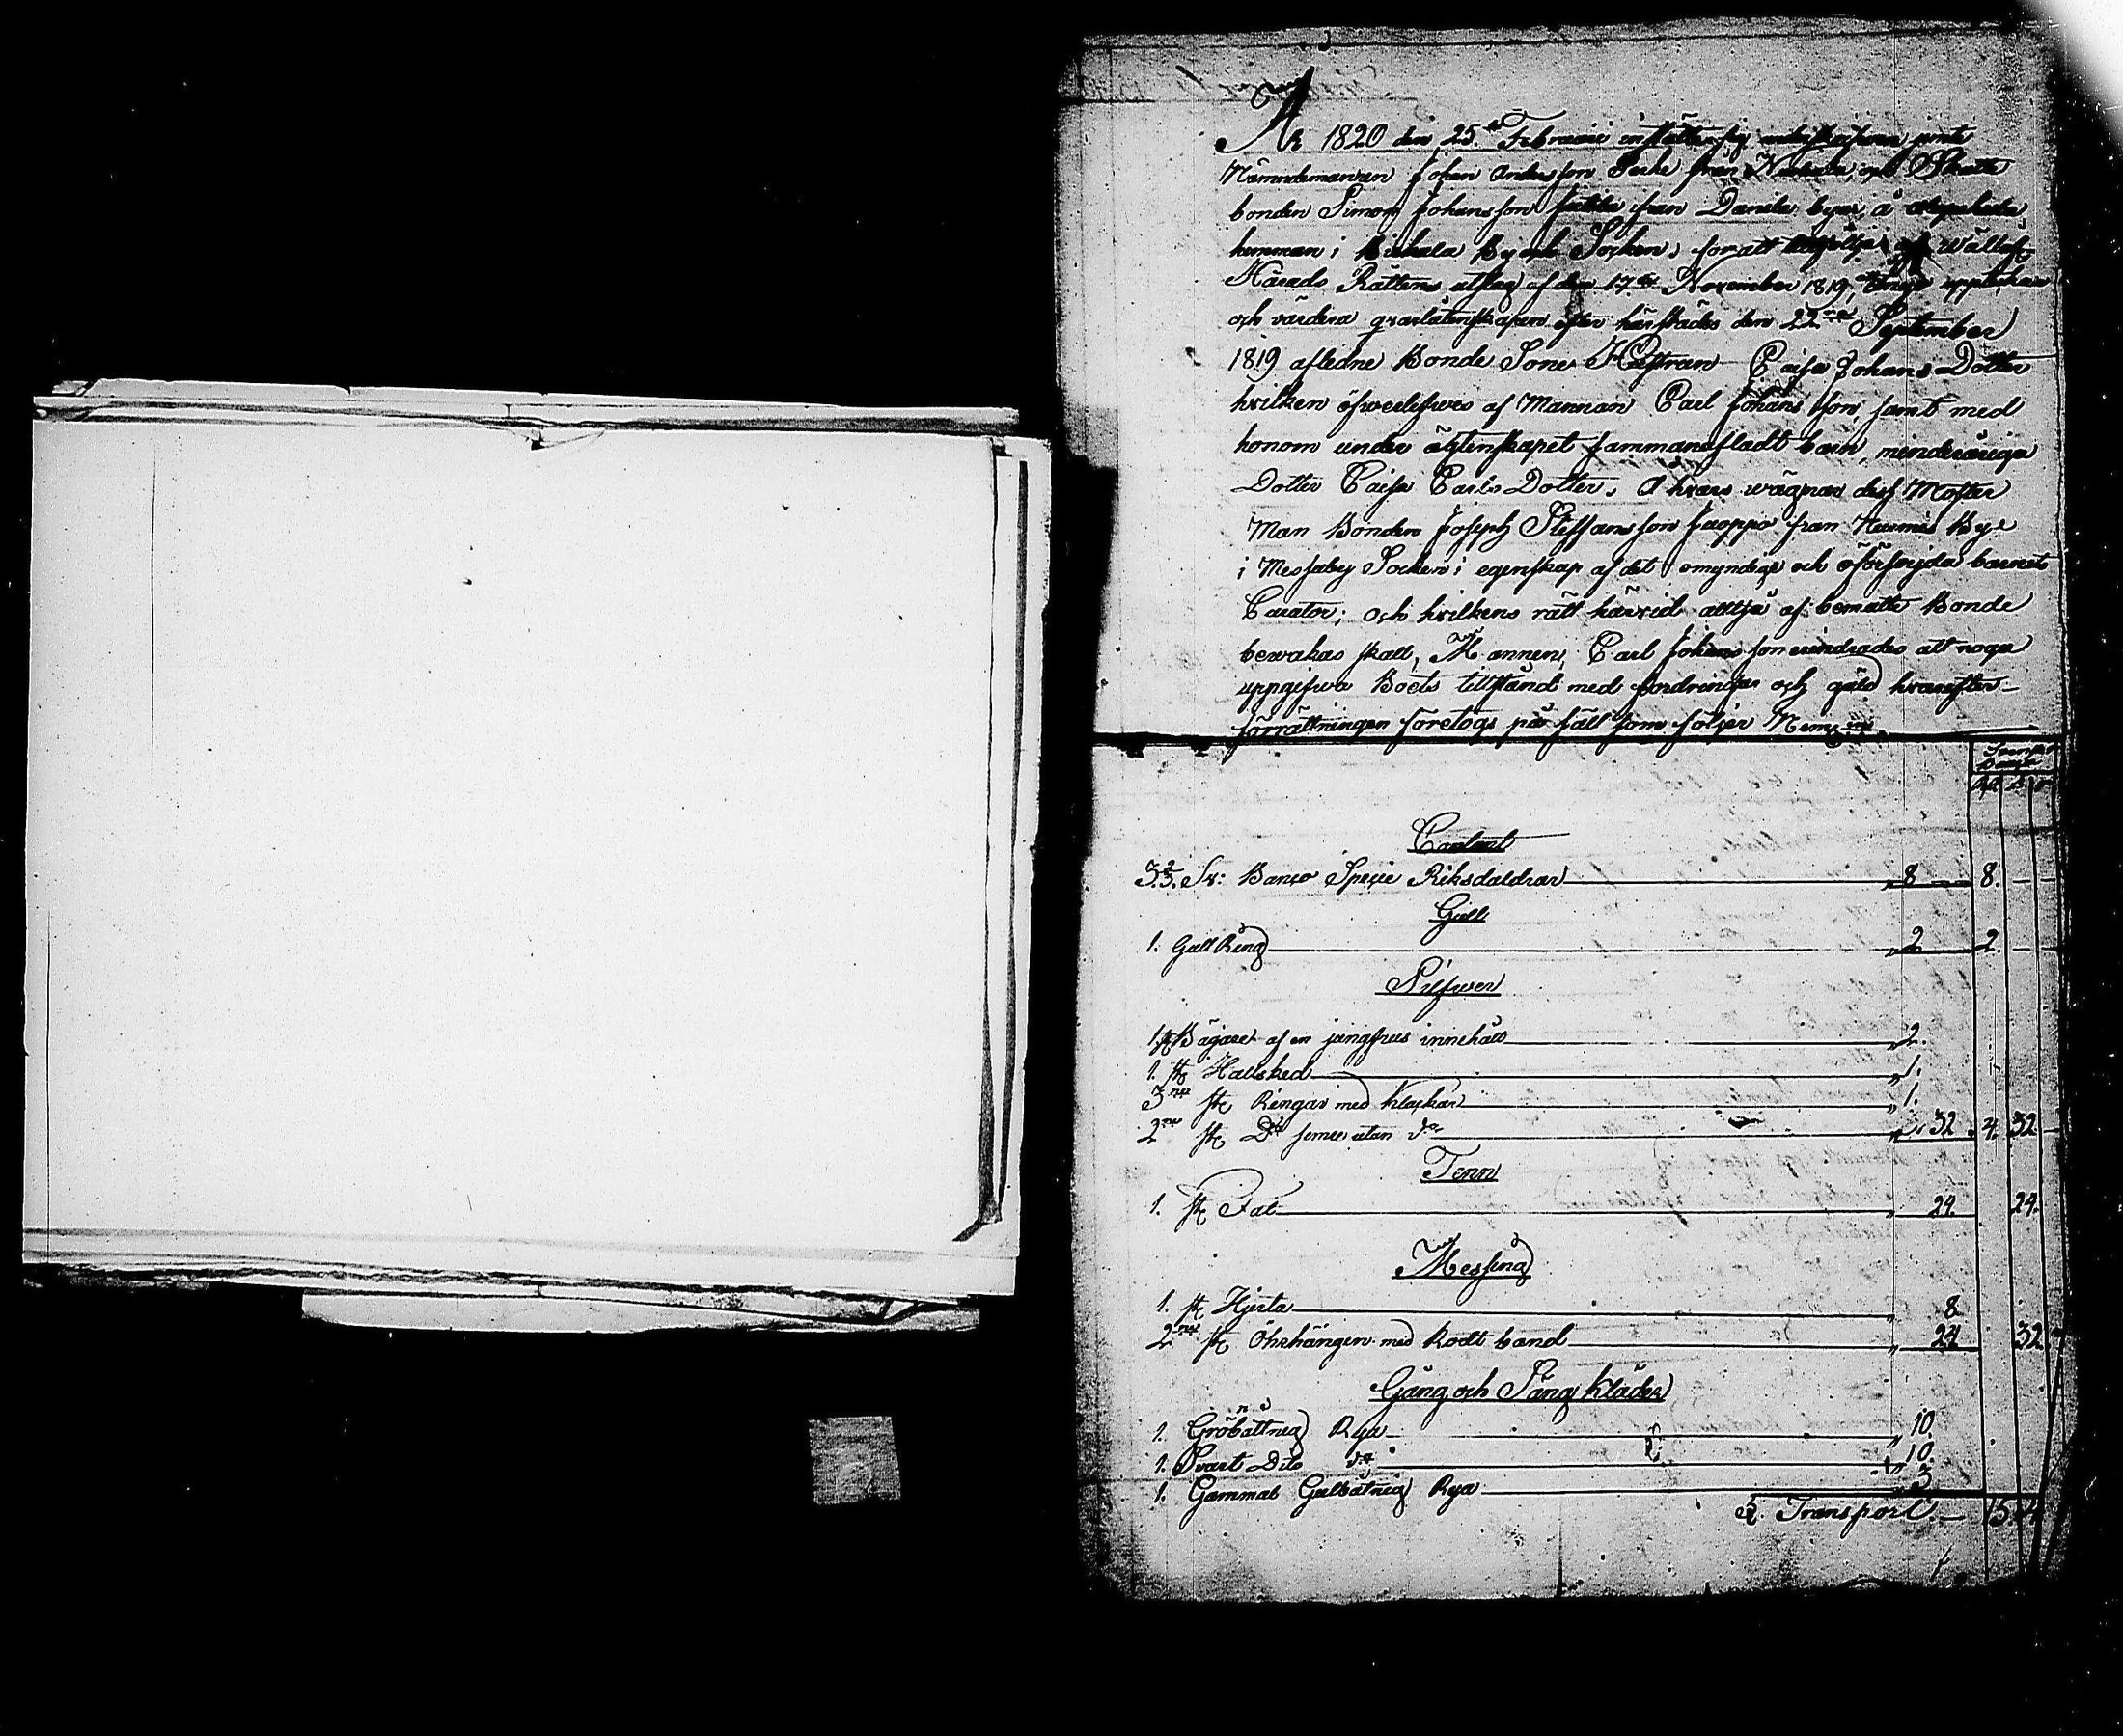 År 1820 den 25te Februarii instälte sig undertecknad jemte
Nämndemannen Johan Andersson från och Skatte
bonden Simon Johansson från Danila byar, å
hemman i Birkala By och Socken, för att af Wällof:
Härads Rättens utslag af den 17de November 1819, uppteckna
och värdera qvarlåtenskapen efter härstädes den 22dra September
1819 afledne Bonde Sone Hustrun Caisa Johans Dotter
hvilken öfwerlefwes af Mannen Carl Johansson, samt med
honom under ägtenskapet sammanafladt barn, minderåriga
Dotter Caisa Carls Dotter. Å hvars wägnar dess Moster
Man Bonden Joseph Steffansson från By
i Messuby Socken i egenskap af det omyndige och oförsörjda barnets
Curator; och hvilkens rätt härvid alltså af bemälte Bonde
bewakas skall, Mannen Carl Johansson erindrades att noga
uppgifwa Boets tillstånd med fordringar och gäld hvarefter
förrättningen företogs på sätt som följer Nemn.
Contant
3. Sv: Banco Specie Riksdaldrar 8 8.
Gull
1. Gull Ring 2 2.
Silfwer
1 st Bägare af en jungfrus innehåll 2.
1. st Hallsked 1.
3ne st Ringar med klackar 1.
2ne st Do semre utan do 32 4. 32
Tenn
1. st Fat 24. 24.
Messing
1. st Hjerta 8
2ne st Öhrhängen med Rodt band 24 32
Gång och Säng kläder
1. Grönbåttnig Rya 10.
1. Svart Dito do 10.
1. Gammal Gulbåtnig Rya 3
Transport 15.